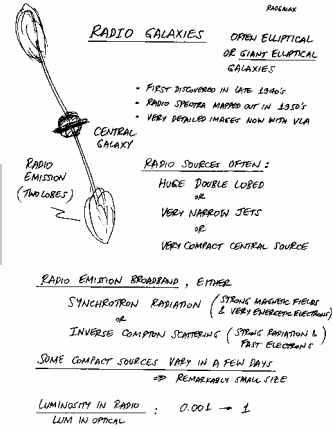 RADGALAX
RADIO GALAXIES
OFTEN ELLIPTICAL
OR GIANT ELLIPTICAL
GALAXIES
- FIRST DISCOVERED IN LATE 1940'S
- RADIO SPECTRA MAPPED OUT IN 1950'S
- VERY DETAILED IMAGES NOW WITH VLA
CENTRAL
GALAXY
RADIO
EMISSION
(TWO LOBES)
RADIO SOURCES OFTEN :
HUGE DOUBLE LOBED
OR
VERY NARROW JETS
OR
VERY COMPACT CENTRAL SOURCE
RADIO EMISSION BROADBAND, EITHER
SYNCHROTRON RADIATION (STRONG MAGNETIC FIELDS
& VERY ENERGETIC ELECTRONS)
OR
INVERSE COMPTON SCATTERING (STRONG RADIATION &
FAST ELECTRONS)
SOME COMPACT SOURCES VARY IN A FEW DAYS
⇒ REMARKABLY SMALL SIZE
LUMINOSITY IN RADIO
LUM IN OPTICAL
: 0.001 → 1